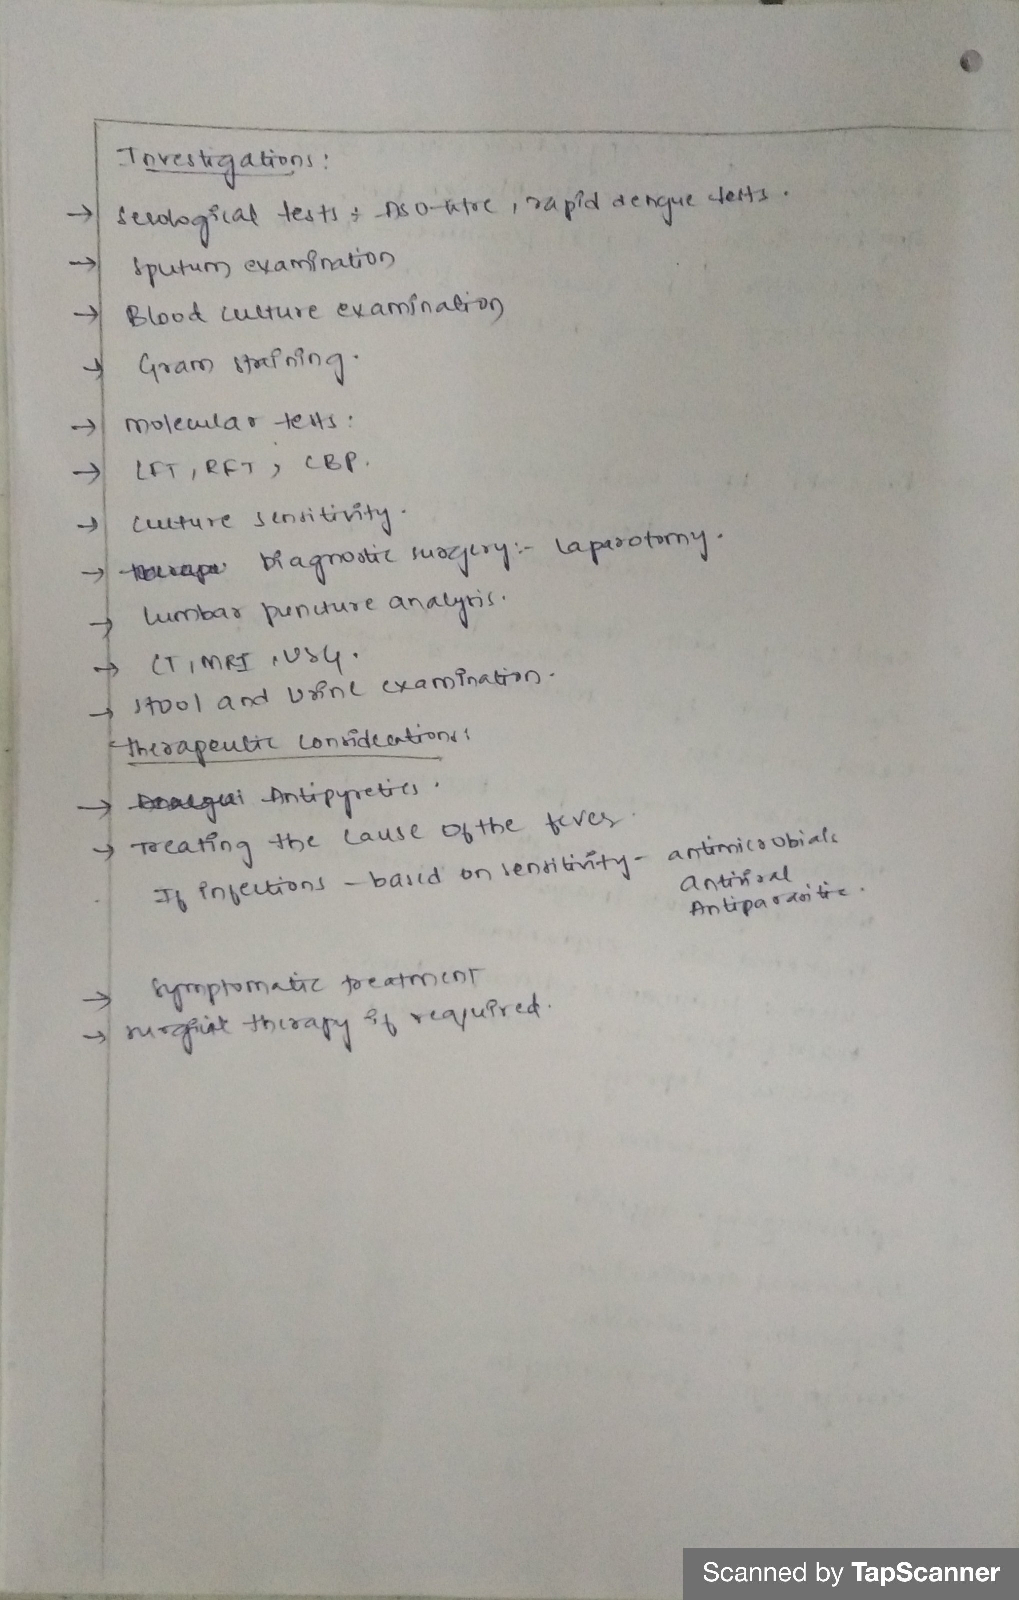 Investigations:
→ serological tests : ASO-titre, rapid dengue tests.
→ Sputum examination
→ Blood culture examination
→ Gram staining.
→ molecular tests:
→ LFT, RFT, CBP.
→ culture sensitivity.
→ Diagnostic surgery:- laparotomy.
→ Lumbar puncture analysis.
→ CT, MRI, USG.
→ stool and urine examination.
therapeutic considerations:
→ Antipyretics.
→ Treating the cause of the fever.
If infections - based on sensitivity - antimicrobials
antiviral
Antiparasitic.
→ Symptomatic treatment
→ therapy if required.
Scanned by TapScanner